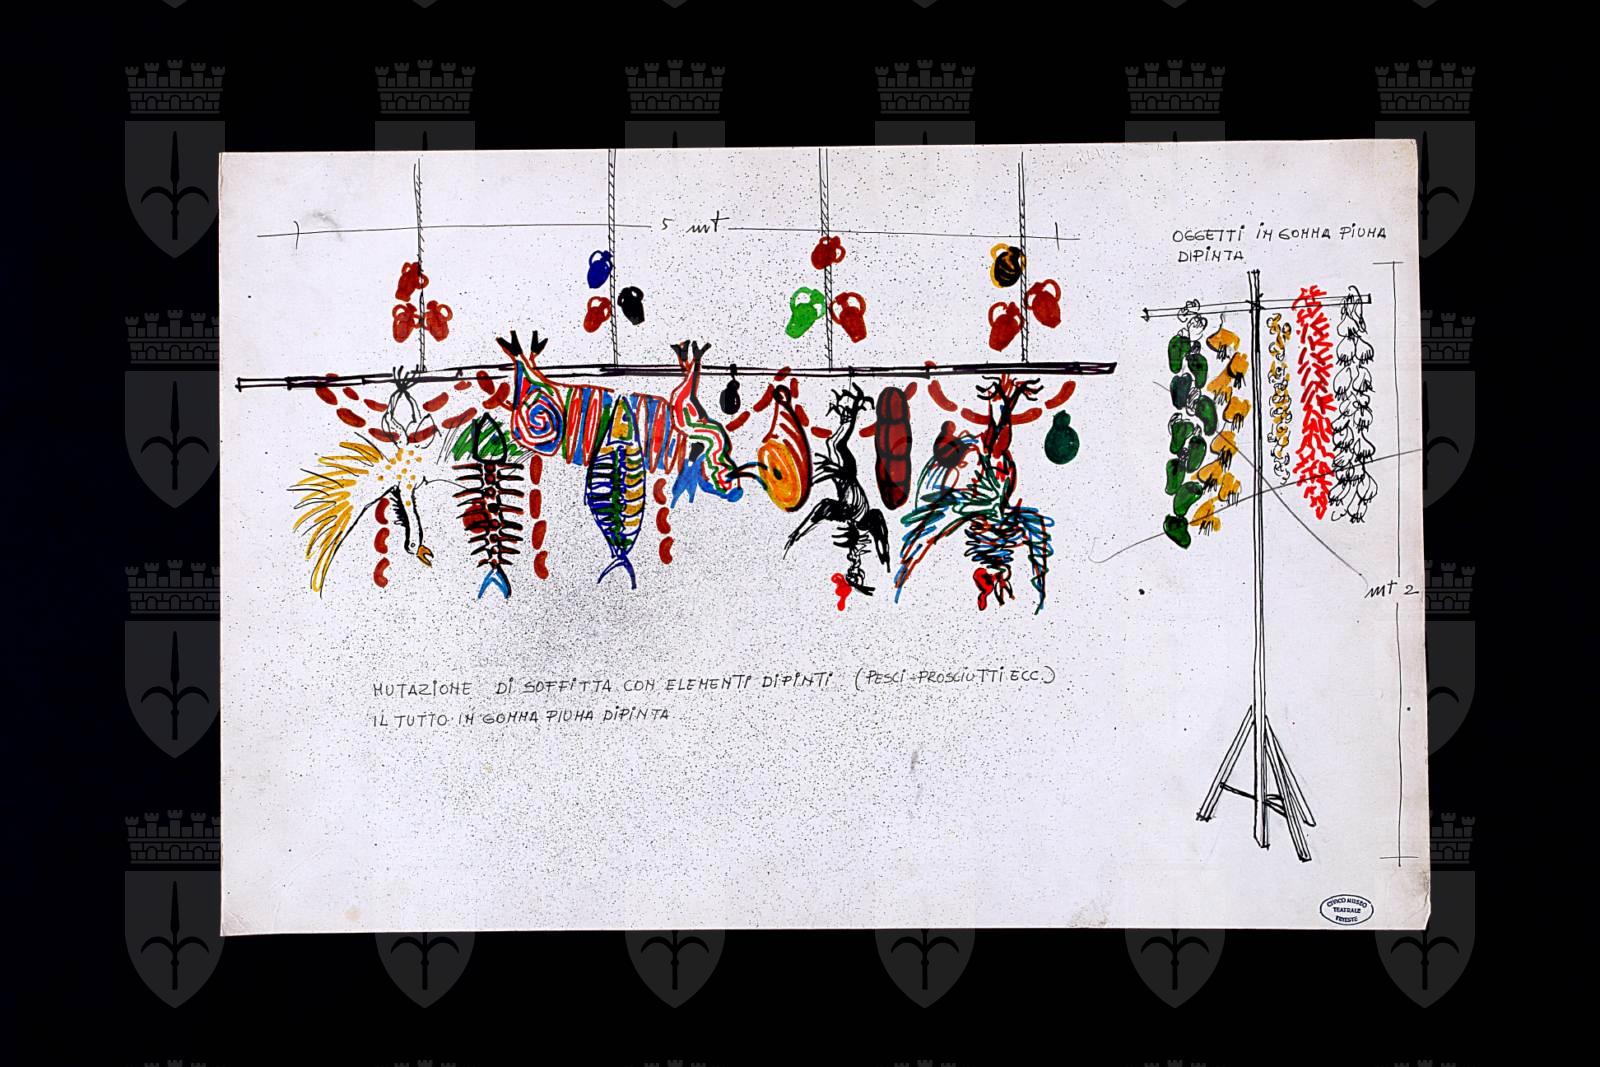 5 mt
OGGETTI IN GOMMA PIUMA
DIPINTA
mt 2
MUTAZIONE DI SOFFITTA CON ELEMENTI DIPINTI (PESCI-PROSCIUTTI ECC.)
IL TUTTO IN GOMMA PIUMA DIPINTA
CIVICO MUSEO
TEATRALE
TRIESTE